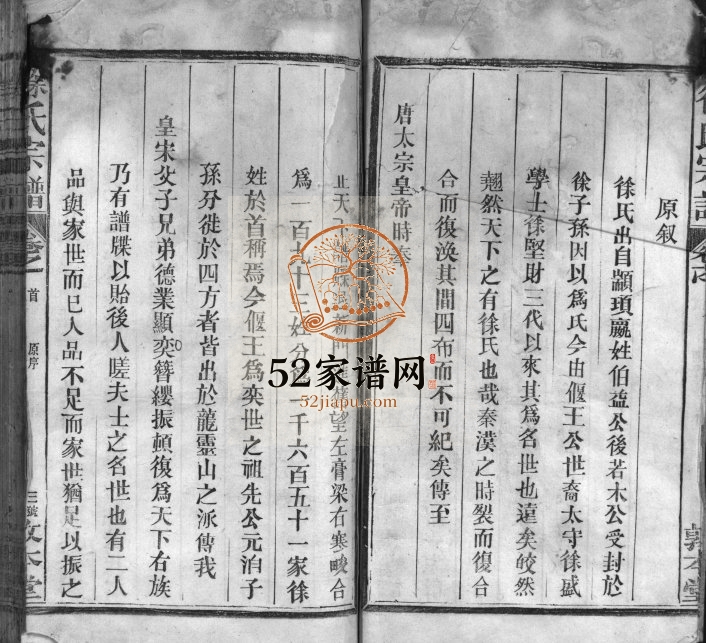 原叙
徐氏出自顓頊嬴姓伯益公後若木公受封於
徐子孫因以爲氏今由偃王公世裔太守徐盛
學士徐堅財三代以來其爲名世也遠矣皎然
翹然天下之有徐氏也哉秦漢之時裂而復合
合而復渙其間四布而不可紀矣傳至
唐太宗皇帝時奏
望左膏梁右寒畯合
爲一百九十三姓分 一千六百五十一家徐
姓於首稱焉今偃王爲奕世之祖先公元泊子
孫分徙於四方者皆出於龍靈山之派傳我
皇宋父子兄弟德業顯奕簪纓振頓復爲天下右族
乃有譜牒以貽後人嗟夫士之名世也有二人
品與家世而已人品不足而家世猶足以振之
徐氏宗譜
首
原序
三號
敦本堂
52家谱网
52jiapu.com